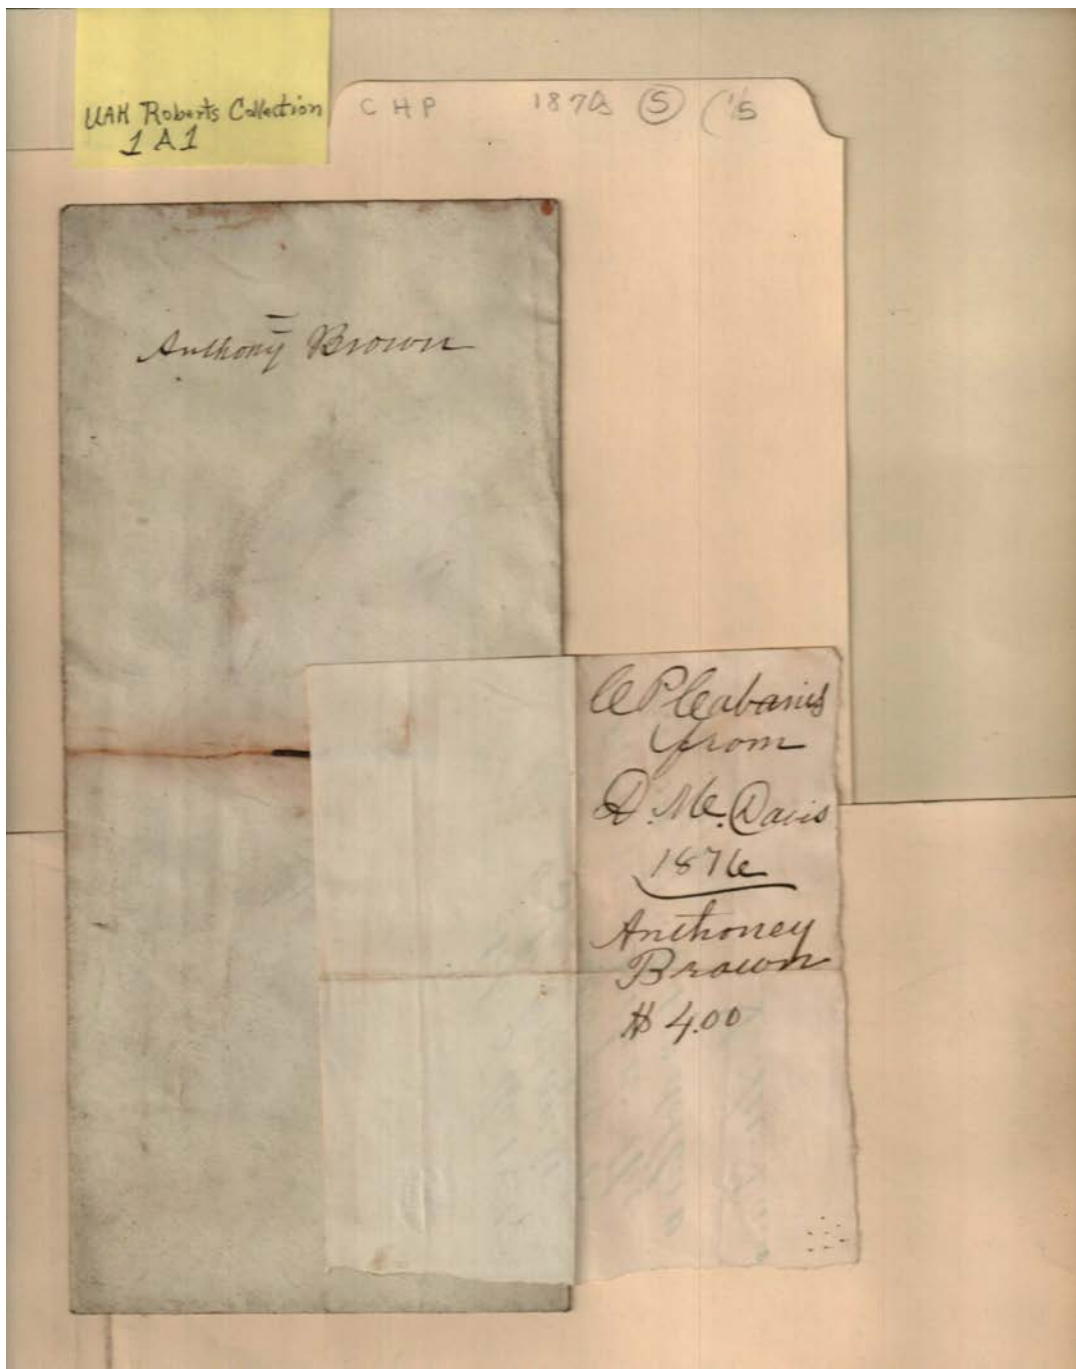 UAH Roberts Collection
1 A 1
C H P 1870s 5
Anthony Brown
C P Cabaniss
from
D. M. Davis
1876
Anthoney
Brown
$ 4.00